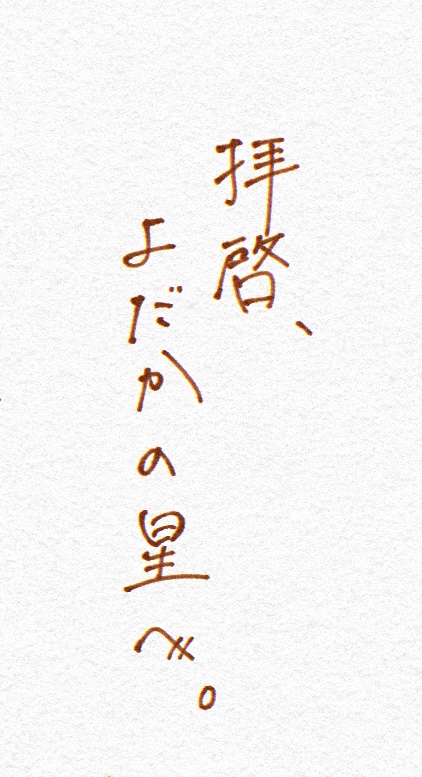 拝啓、
よだかの星へ。